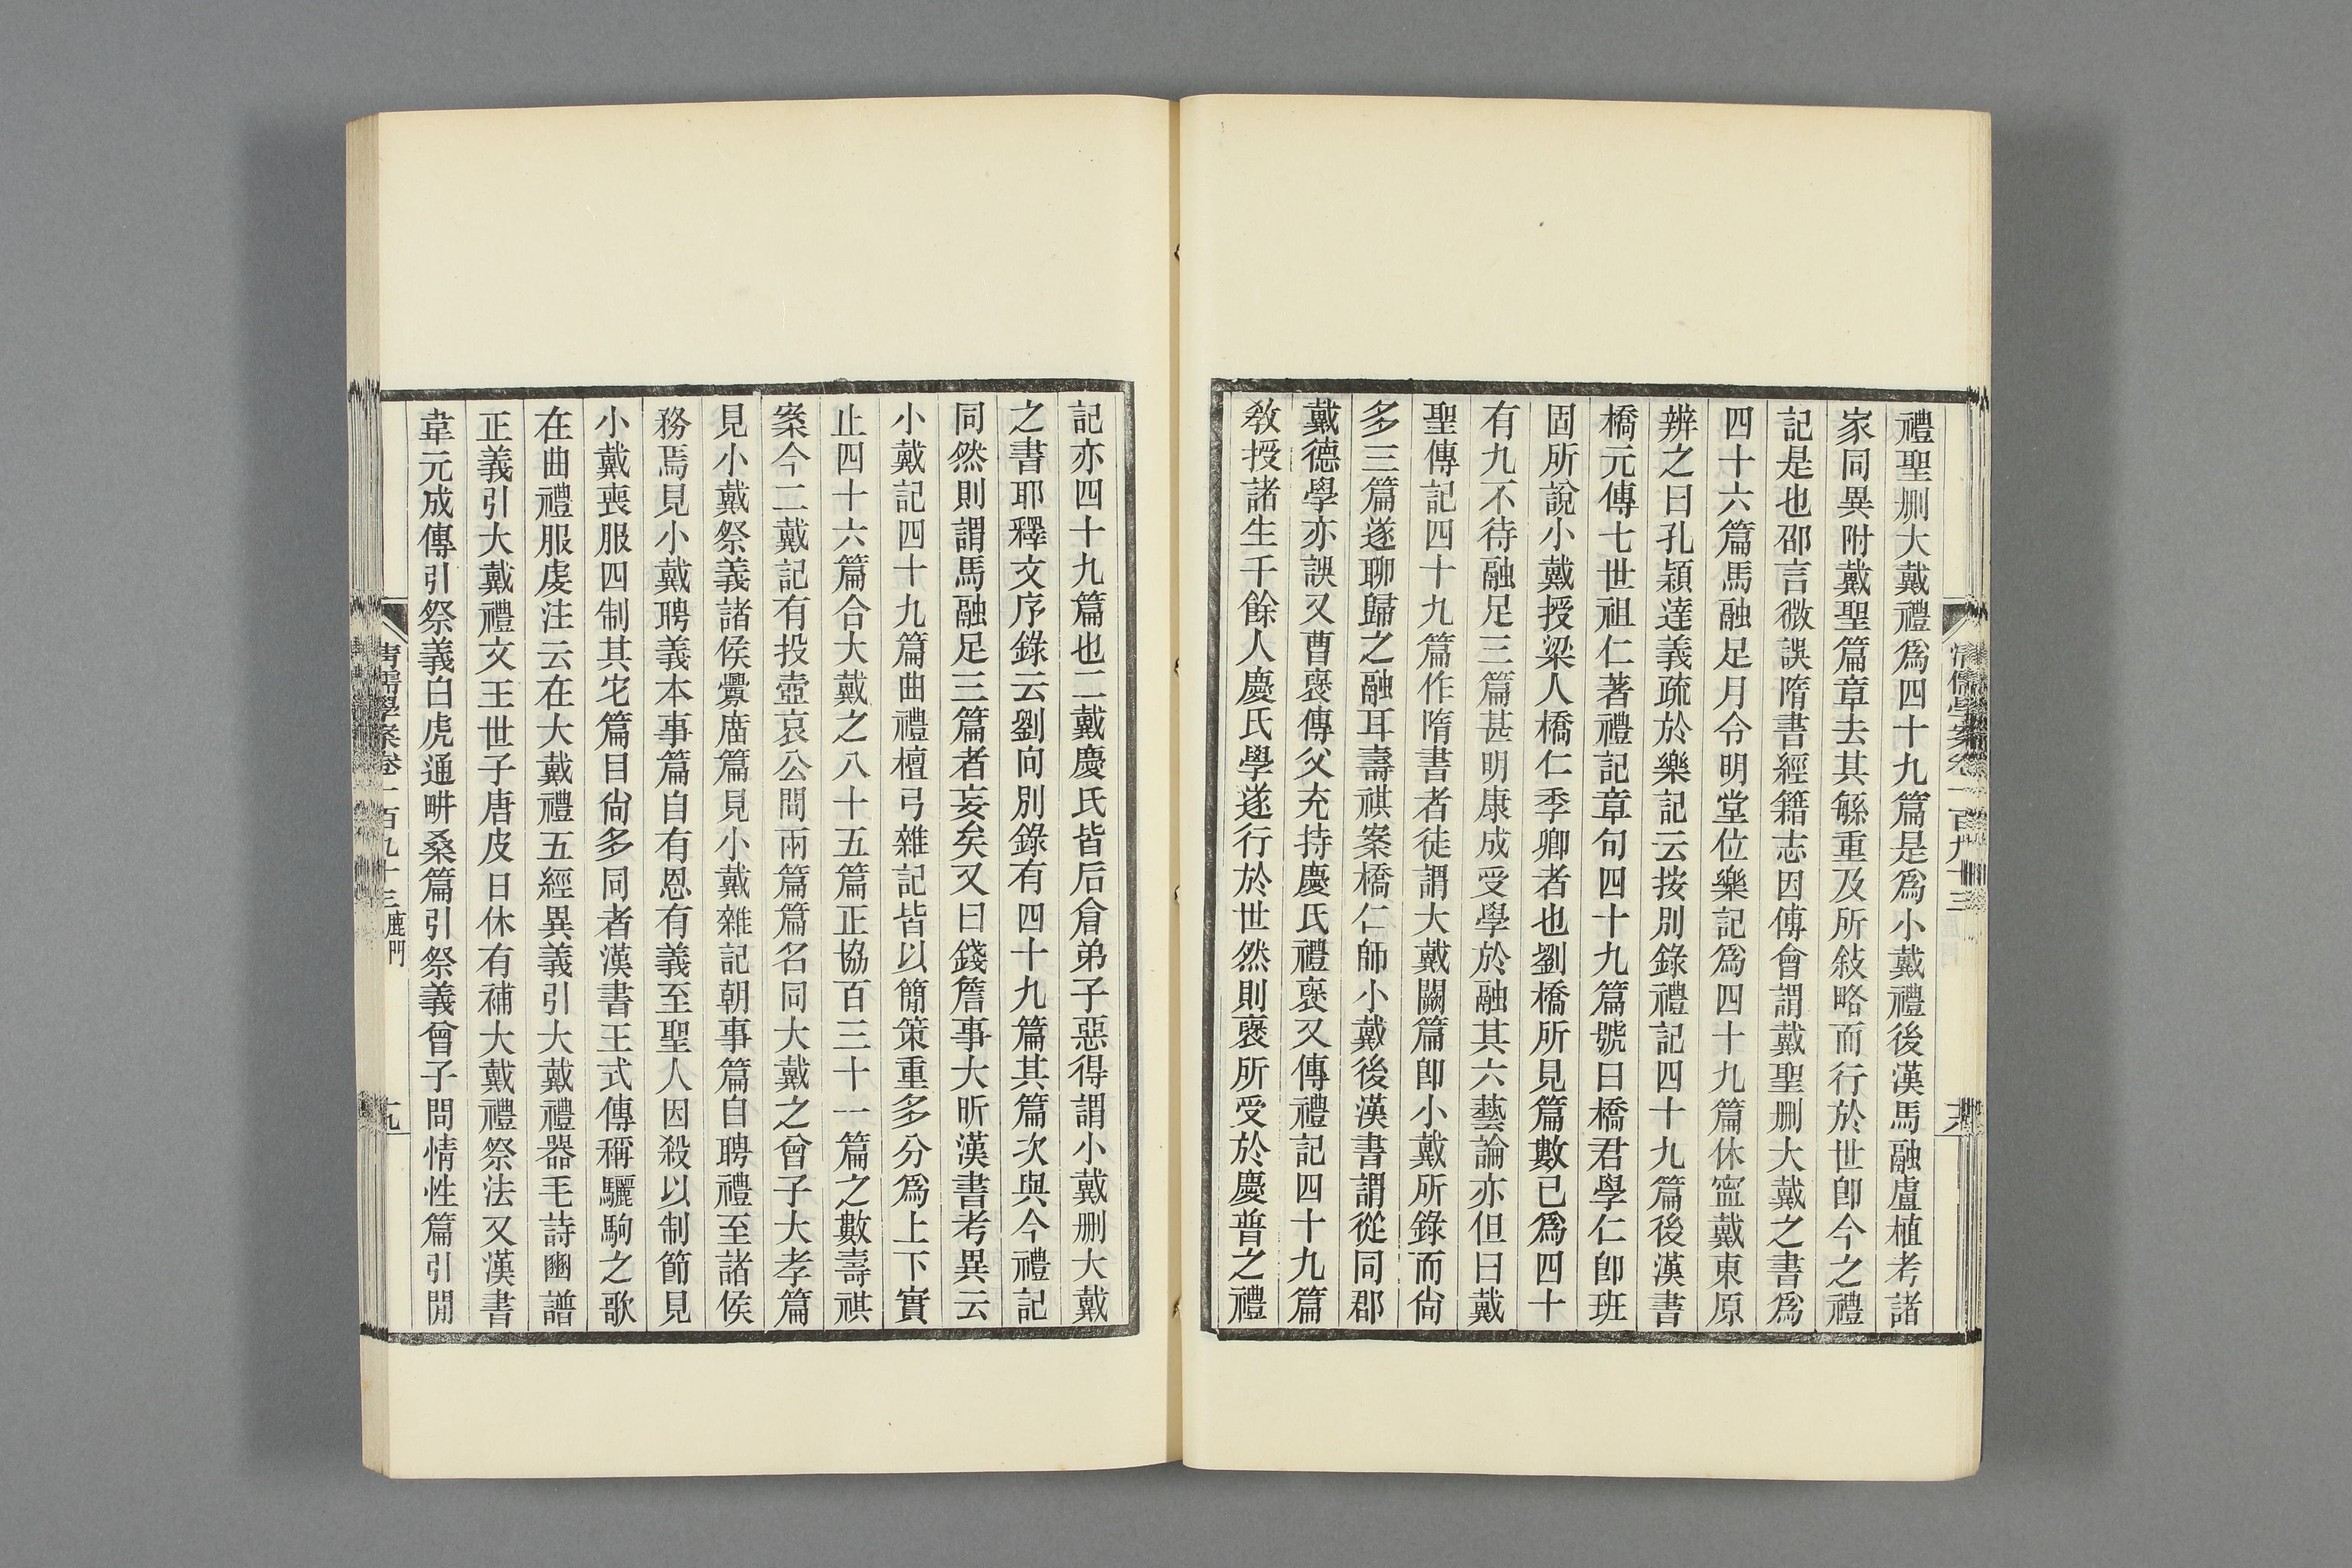 禮聖刪大戴禮爲四十九篇是爲小戴禮後漢馬融盧植考諸
家同異附戴聖篇章去其緐重及所敍略而行於世卽今之禮
記是也邵言微誤隋書經籍志因傳會謂戴聖刪大戴之書爲
四十六篇馬融足月令明堂位樂記爲四十九篇休寍戴東原
辨之曰孔穎達義疏於樂記云按別錄禮記四十九篇後漢書
橋元傳七世祖仁著禮記章句四十九篇號曰橋君學仁卽班
固所說小戴授梁人橋仁季卿者也劉橋所見篇數已爲四十
有九不待融足三篇甚明康成受學於融其六藝論亦但曰戴
聖傳記四十九篇作隋書者徒謂大戴闕篇卽小戴所錄而尙
多三篇遂聊歸之融耳壽祺案橋仁師小戴後漢書謂從同郡
戴德學亦誤又曹襃傳父充持慶氏禮襃又傳禮記四十九篇
敎授諸生千餘人慶氏學遂行於世然則襃所受於慶普之禮
清儒學案卷一百九十三
記亦四十九篇也二戴慶氏皆后倉弟子惡得謂小戴刪大戴
之書耶釋文序錄云劉向別錄有四十九篇其篇次與今禮記
同然則謂馬融足三篇者妄矣又曰錢詹事大昕漢書考異云
小戴記四十九篇曲禮檀弓雜記皆以簡策重多分爲上下實
止四十六篇合大戴之八十五篇正協百三十一篇之數壽祺
案今二戴記有投壺哀公問兩篇篇名同大戴之曾子大孝篇
見小戴祭義諸侯釁廟篇見小戴雜記朝事篇自聘禮至諸侯
務焉見小戴聘義本事篇自有恩有義至聖人因殺以制節見
小戴喪服四制其它篇目尙多同者漢書王式傳稱驪駒之歌
在曲禮服虔注云在大戴禮五經異義引大戴禮器毛詩豳譜
正義引大戴禮文王世子唐皮日休有補大戴禮祭法又漢書
韋元成傳引祭義白虎通畊桑篇引祭義曾子問情性篇引閒
清儒學案卷一百九十三 鹿門
十九